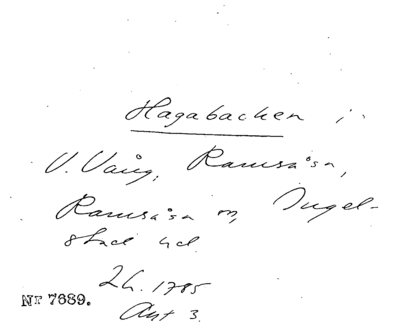 Hagabacken i
V. Vång, Ramsåsa,
Ramsåsa sn, Ingel-
stad hd.
Lh. 1785
Akt 3.
Nr 7689.